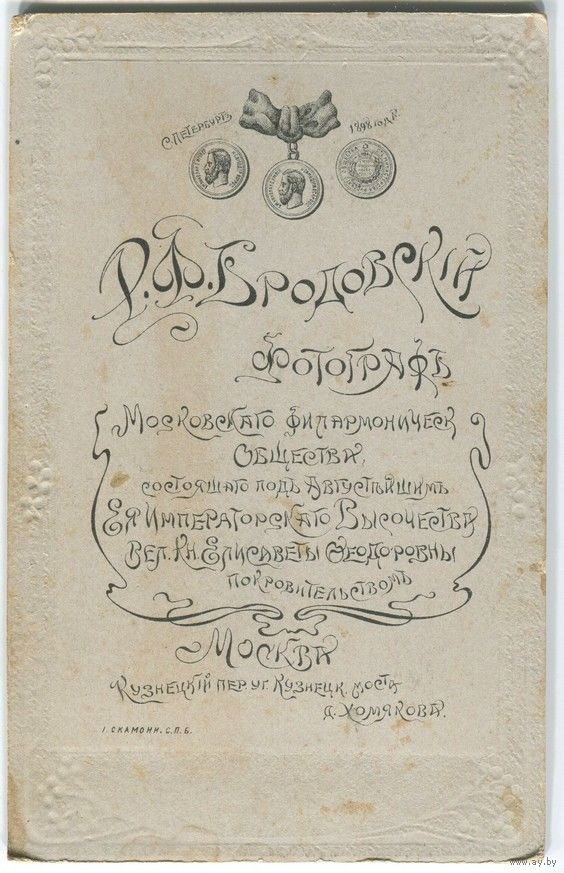 С. ПЕТЕРБУРГЪ 1898 ГОДА
Р. Ф. БРОДОВСКІЙ
ФОТОГРАФЪ
МОСКОВСКАГО ФИЛАРМОНИЧЕСК
ОБЩЕСТВА,
СОСТОЯЩАГО ПОДЪ АВГУСТѢЙШИМЪ
ЕЯ ИМПЕРАТОРСКАГО ВЫСОЧЕСТВА
ВЕЛ. КН. ЕЛИСАВЕТЫ ѲЕОДОРОВНЫ
ПОКРОВИТЕЛЬСТВОМЪ
МОСКВА
КУЗНЕЦКІЙ ПЕР. УГ. КУЗНЕЦК. МОСТА
Д. ХОМЯКОВА.
І. СКАМОНИ. С.П.Б.
www.ay.by